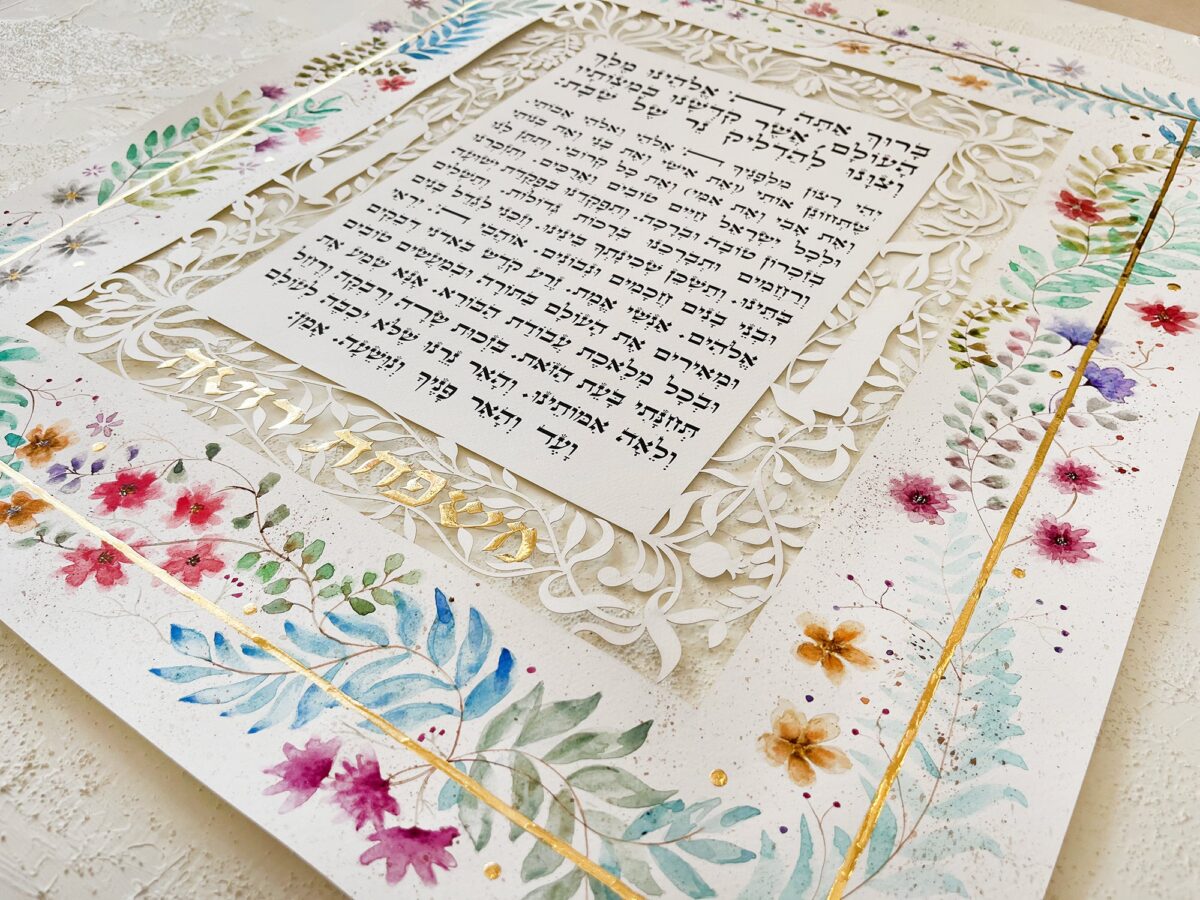 בָּרוּךְ אַתָּה ה: אֱלֹהֵינוּ מֶלֶךְ
הָעוֹלָם, אֲשֶׁר קִדְּשָׁנוּ בְּמִצְוֹתָיו
וְצִוָּנוּ לְהַדְלִיק נֵר שֶׁל שַׁבָּת:
יְהִי רָצוֹן מִלְּפָנֶיךָ ה: אֱלֹהַי וֵאלֹהֵי אֲבוֹתַי.
שֶׁתְּחוֹנֵן אוֹתִי (וְאֶת אִישִׁי וְאֶת בָּנַי וְאֶת בְּנוֹתַי
וְאֶת אָבִי וְאֶת אִמִּי) וְאֶת כָּל קְרוֹבַי. וְתִתֵּן לָנוּ
וּלְכָל יִשְׂרָאֵל חַיִּים טוֹבִים וַאֲרֻכִּים. וְתִזְכְּרֵנוּ
בְּזִכְרוֹן טוֹבָה וּבְרָכָה. וְתִפְקְדֵנוּ בִּפְקֻדַּת יְשׁוּעָה
וְרַחֲמִים וּתְבָרְכֵנוּ בְּרָכוֹת גְּדוֹלוֹת. וְתַשְׁלִים
בָּתֵּינוּ. וְתַשְׁכֵּן שְׁכִינָתְךָ בֵּינֵינוּ. וְזַכֵּנִי לְגַדֵּל בָּנִים
וּבְנֵי בָנִים חֲכָמִים וּנְבוֹנִים. אוֹהֲבֵי ה: יִרְאֵי
אֱלֹהִים. אַנְשֵׁי אֱמֶת. זֶרַע קֹדֶשׁ בַּאדֹנָי דְּבֵקִים
וּמְאִירִים אֶת הָעוֹלָם בַּתּוֹרָה. וּבְמַעֲשִׂים טוֹבִים
וּבְכָל מְלֶאכֶת עֲבוֹדַת הַבּוֹרֵא. אָנָּא שְׁמַע אֶת
תְּחִנָּתִי בָּעֵת הַזֹּאת. בִּזְכוּת שָׂרָה וְרִבְקָה וְרָחֵל
וְלֵאָה אִמּוֹתֵינוּ. וְהָאֵר נֵרֵנוּ שֶׁלֹּא יִכְבֶּה לְעוֹלָם
וָעֶד וְהָאֵר פָּנֶיךָ וְנִוָּשֵׁעָה. אָמֵן.
משפחת